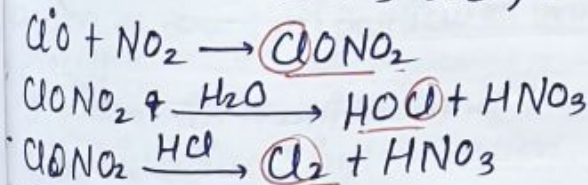 ClȮ + NO₂ → ClONO₂
ClONO₂ + H₂O → HOCl + HNO₃
ClONO₂ HCl → Cl₂ + HNO₃